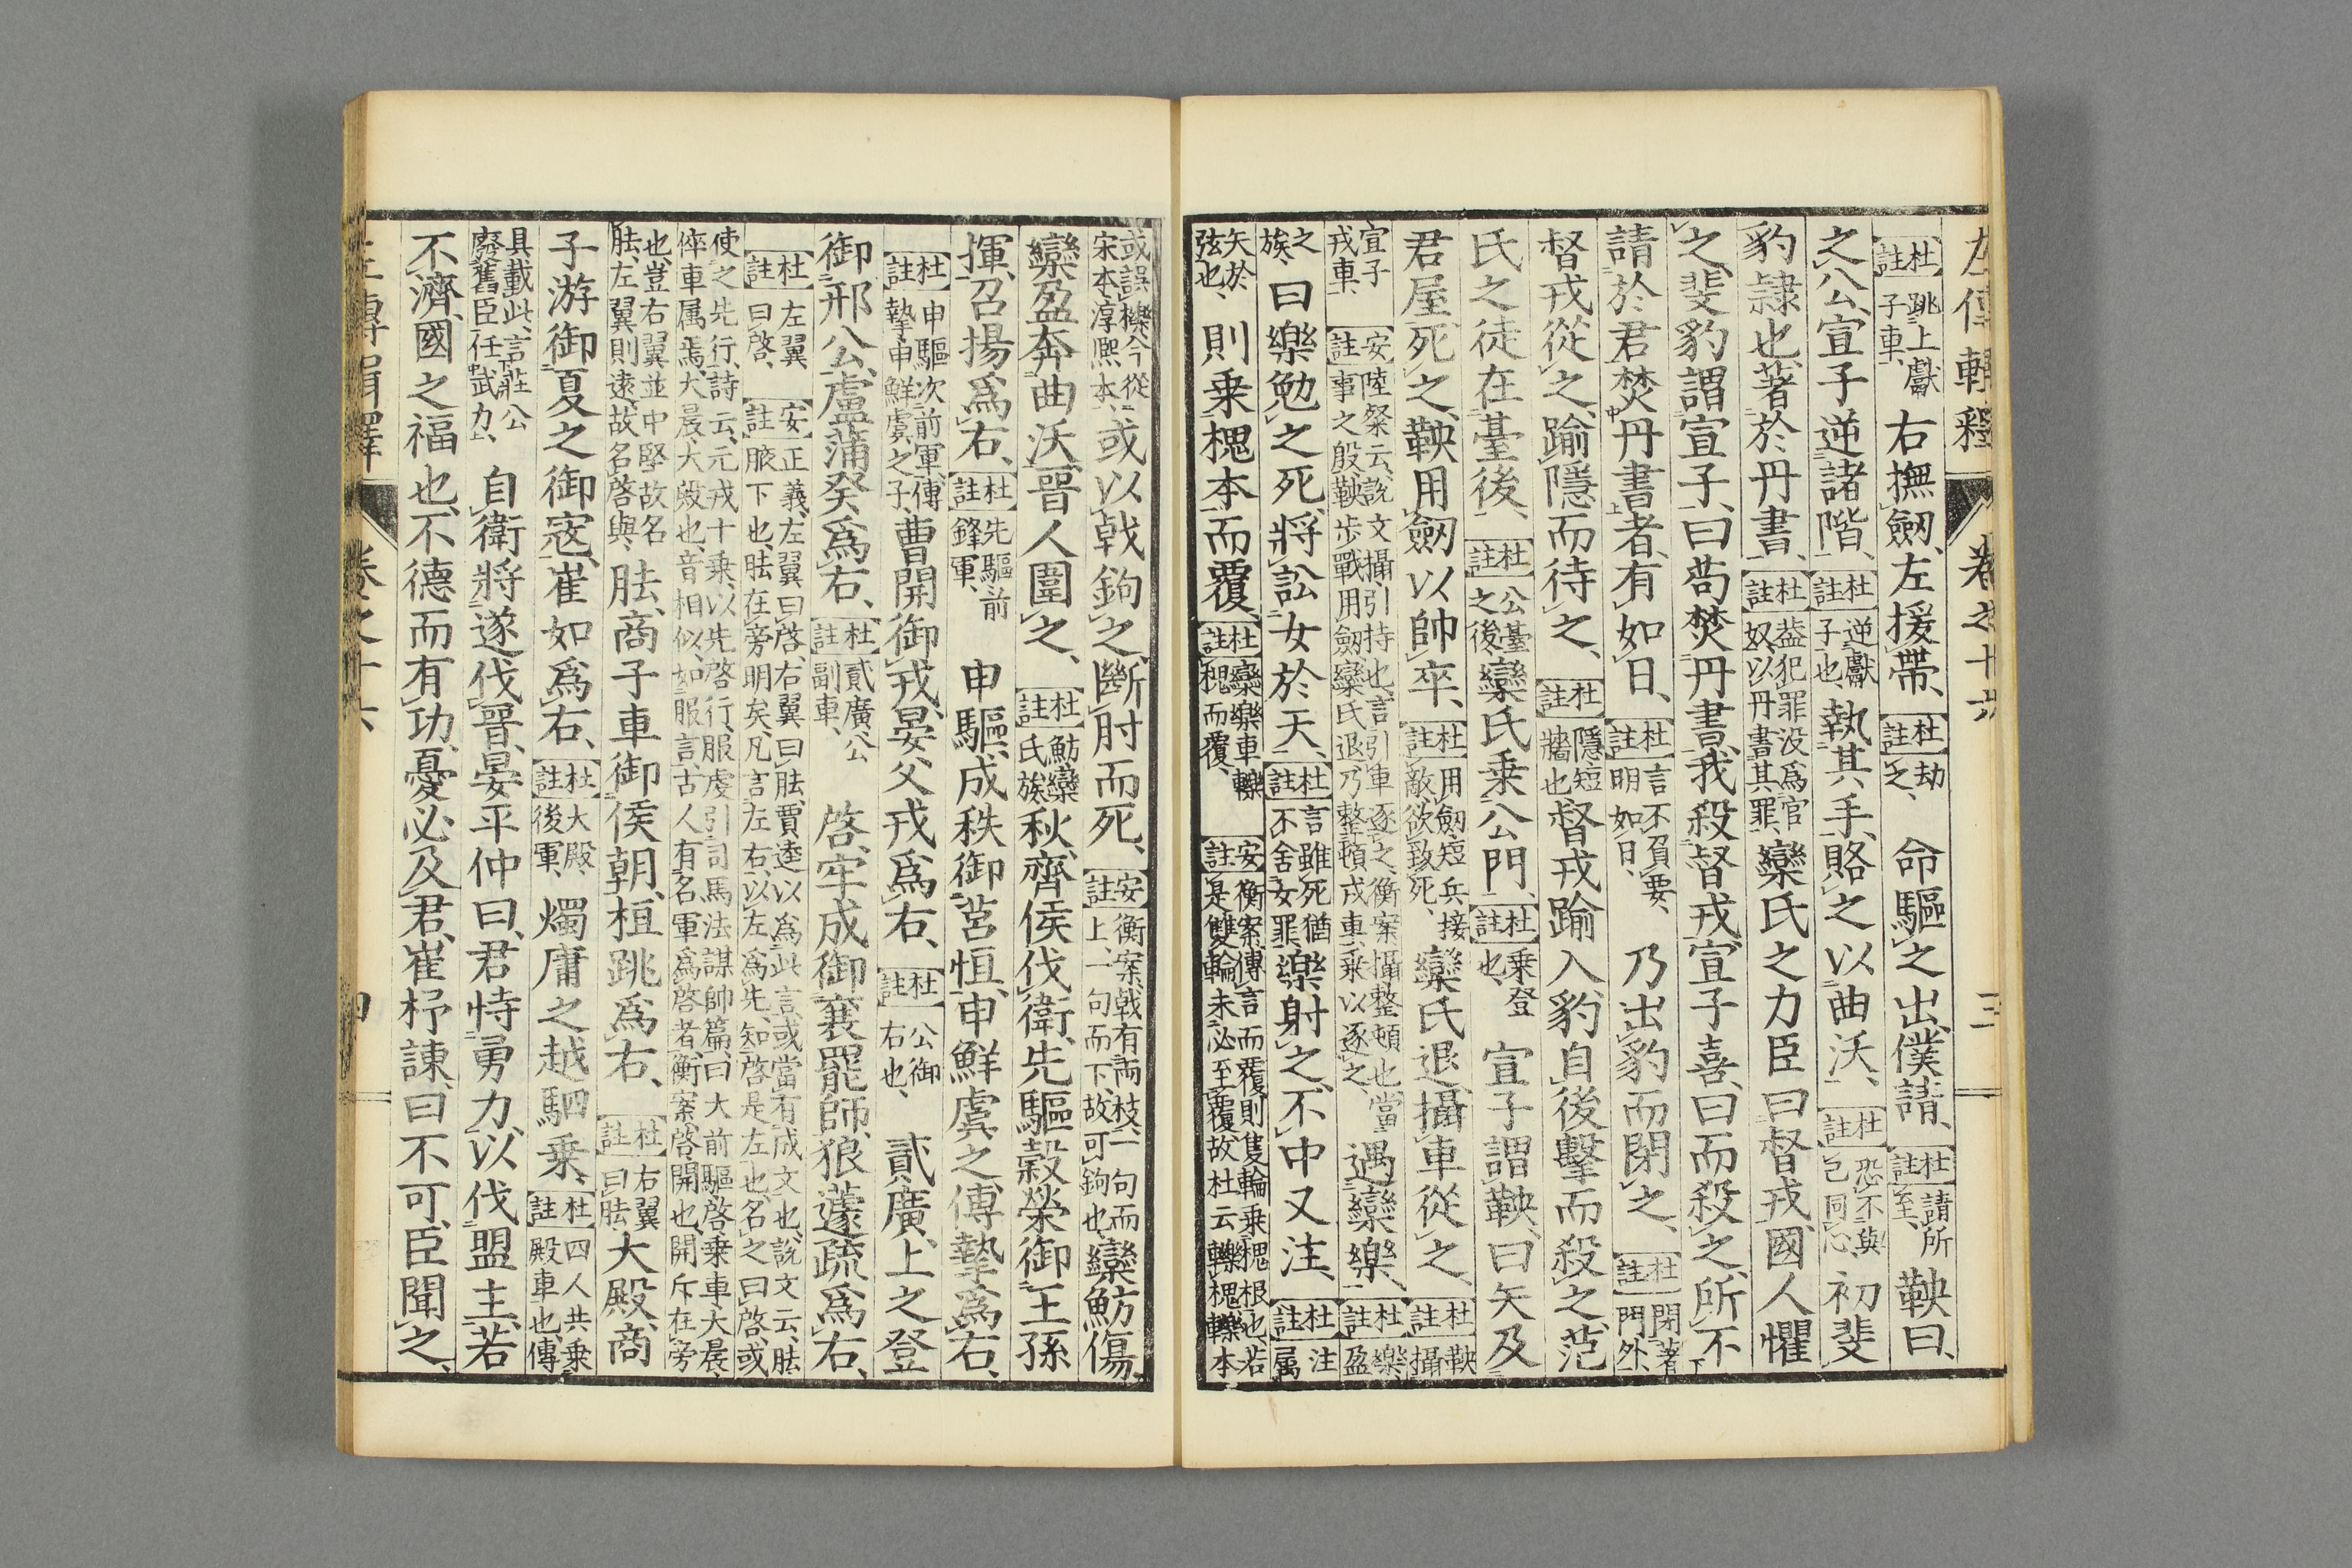 左傳輯釋 卷之十六 三
【杜註】跳上獻子車、右撫劒、左援帶、【杜註】劫之、命驅之出、僕請、【杜註】請所至、鞅曰、
之公、宣子逆諸階、【杜註】逆獻子也、執其手、賂之以曲沃、【杜註】恐不與己同心、初斐
豹隷也、著於丹書、【杜註】葢犯罪没爲官奴、以丹書其罪、欒氏之力臣曰督戎、國人懼
之、斐豹謂宣子、曰、苟焚丹書、我殺督戎、宣子喜、曰、而殺之、所不
請於君焚丹書者、有如日、【杜註】言不負要、明如日、乃出豹而閉之、【杜註】閉著門外、
督戎從之、踰隱而待之、【杜註】隱短牆也督戎踰入、豹自後擊而殺之、范
氏之徒在臺後、【杜註】公臺之後、欒氏乗公門、【杜註】乗登也、宣子謂鞅、曰、矢及
君屋死之、鞅用劒以帥卒、【杜註】用劒短兵接敵、欲致死、欒氏退、攝車從之、【杜註】鞅攝
宣子戎車、【安註】陸粲云、說文攝、引持也、言引車逐之、衡案、攝整頓也、當事之殷、鞅步戰用劒、欒氏退、乃整頓戎車、乗以逐之、遇欒樂、【杜註】樂盈
之族、曰、樂勉之、死、將訟女於天、【杜註】言雖死猶不舍女罪、樂射之、不中、又注、【杜註】注属
矢於弦也、則乗槐本而覆、【杜註】欒樂車轢槐而覆、【安註】衡案、傳言而覆、則隻輪乗槐根也、若是雙輪、未必至覆、故杜云轢槐、轢本
或誤櫟、今從宋本淳熙本、或以戟鉤之、斷肘而死、【安註】衡案、戟有兩枝、一句而上、一句而下、故可鉤也、欒魴傷、
欒盈奔曲沃、晉人圍之、【杜註】魴欒氏族、秋、齊侯伐衛、先驅榖榮御王孫
揮、召揚爲右、【杜註】先驅前鋒軍、申驅、成秩御莒恒、申鮮虞之傅摯爲右、
【杜註】申驅次前軍、傅摯、申鮮虞之子、曹開御戎、晏父戎爲右、【杜註】公御右也、貳廣、上之登
御邢公、盧蒲癸爲右、【杜註】貳廣、公副車、啓、牢成御襄罷師、狼蘧疏爲右、
【杜註】左翼曰啓、【安註】正義、左翼曰啓、右翼曰胠、賈逵以爲此言、或當有成文也、說文云、胠腋下也、胠在旁明矣、凡言左右、以左爲先、知啓是左也、名之曰啓、或
使之先行、詩云、元戎十乗、以先啓行、服虔引司馬法謀帥篇、曰、大前驅啓乗車、大晨倅車属焉、大晨、大殿也、音相似、如服言、古人有名軍爲啓者、衡案、啓、開也、開斥在旁
也、豈右翼並中堅、故名胠、左翼則遠、故名啓與、胠、商子車御侯朝、桓跳爲右、【杜註】右翼曰胠、大殿、商
子游御夏之御寇、崔如爲右、【杜註】大殿、後軍、燭庸之越駟乗、【杜註】四人共乗殿車也、傳
具載此、言莊公廢舊臣任武力、自衛將遂伐晉、晏平仲曰、君恃勇力、以伐盟主、若
不濟、國之福也、不德而有功、憂必及君、崔杼諫、曰、不可、臣聞之、
左傳輯釋 卷之十六 四